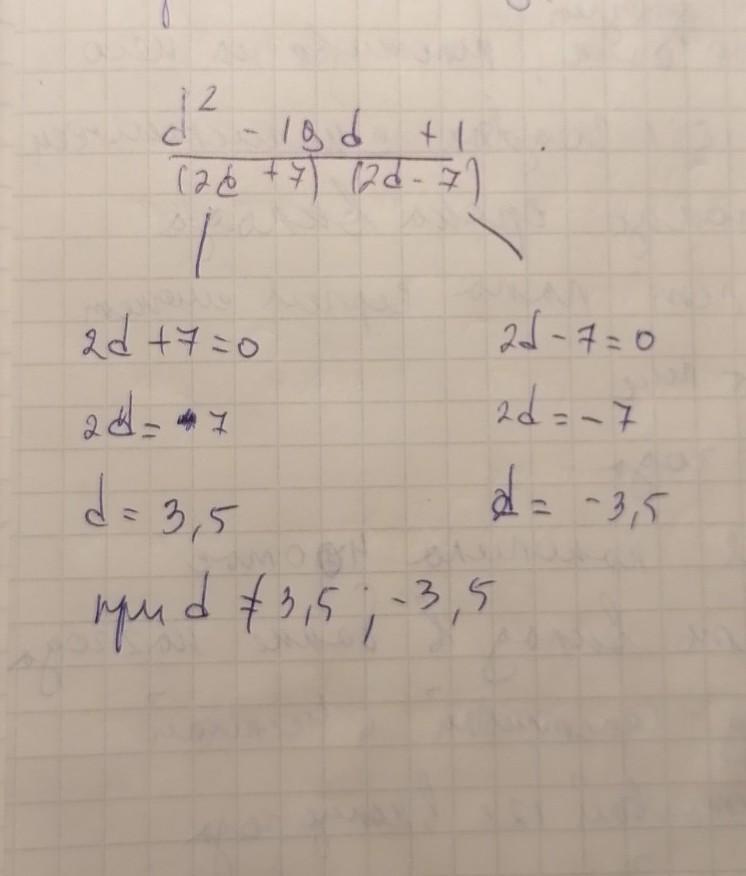 d² - 19d + 1
(2d + 7) (2d - 7)
2d + 7 = 0
2d = 7
d = 3,5
2d - 7 = 0
2d = - 7
d = -3,5
при d ≠ 3,5 ; -3,5